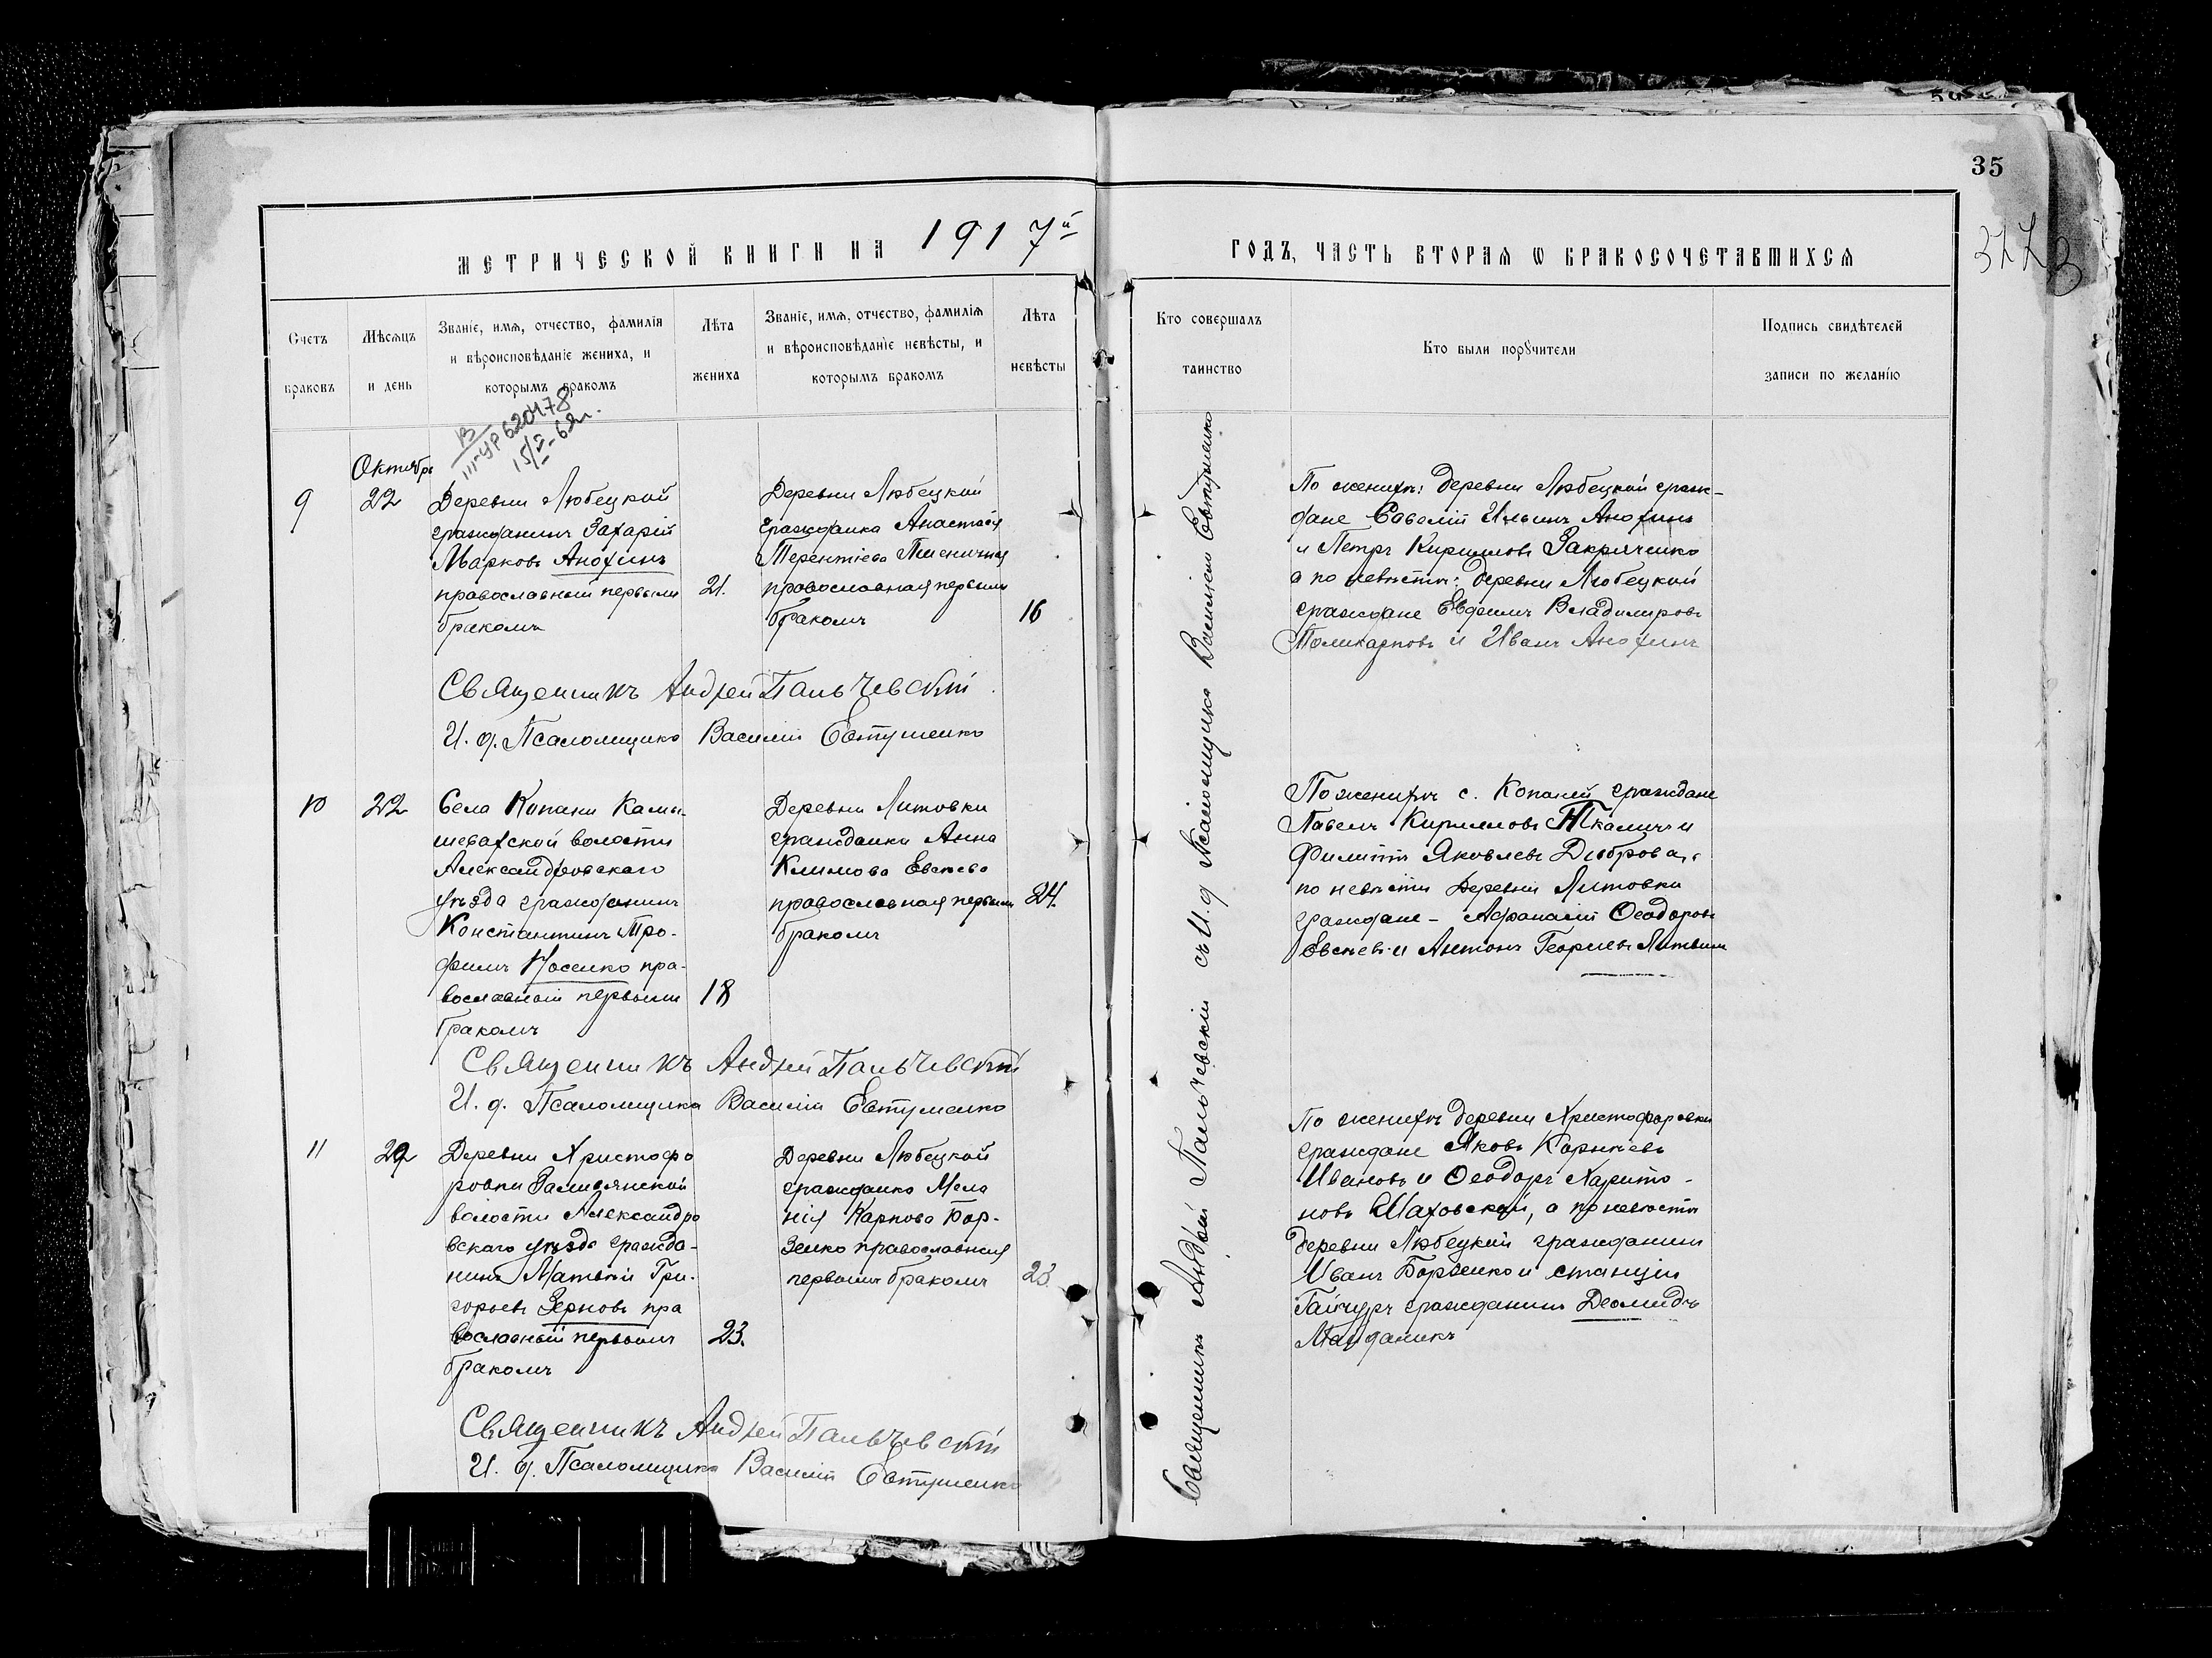 35
МЕТРИЧЕСКОЙ КНИГИ НА 1917й
ГОДЪ, ЧАСТЬ ВТОРАЯ Ѡ БРАКОСОЧЕТАВШИХСЯ
Счетъ
браковъ
Мѣсяцъ
и день
Званіе, имя, отчество, фамилія
и вѣроисповѣданіе жениха, и
которымъ бракомъ
Лѣта
жениха
Званіе, имя, отчество, фамилія
и вѣроисповѣданіе невѣсты, и
которымъ бракомъ
Лѣта
невѣсты
Кто совершалъ
таинство
Кто были порꙋчители
Подпись свидѣтелей
записи по желанію
620478
15/II-62г.
9
Октября
22
Деревни Любецкой
гражданинъ Захарій
Марковъ Анохинъ
православный первымъ
бракомъ
21.
Деревни Любецкой
гражданка Анастасія
Терентіева Пшенична
православная первымъ
бракомъ
16
По женихѣ: деревни Любецкой граж-
дане Савелій Ильинъ Анохинъ
и Петръ Кирилловъ Закряченко
а по невѣстѣ: деревни Любецкой
граждане Евфимъ Владимировъ
Поликарповъ и Иванъ Анохинъ
Священникъ Андрей Пальчевскій
И. д. Псаломщика Василій Евтушенко
10
22
Села Копани Камы-
шеватской волости
Александровскаго
уѣзда гражданинъ
Константинъ Тро-
фимъ Носенко пра-
вославный первымъ
бракомъ
18
Деревни Литовки
гражданка Анна
Климова Евсѣева
православная первымъ
бракомъ
24.
По женихѣ с. Копаней граждане
Павелъ Кирилловъ Ткаличъ и
Филиппъ Яковлевъ Диброва,
по невѣстѣ деревни Литовки
граждане - Афанасій Ѳеодоровъ
Евсѣевъ и Антонъ Георгіевъ Литвинъ
Священникъ Андрей Пальчевскій
И. д. Псаломщика Василій Евтушенко
11
Деревни Христофо
ровки
волости Александро
вскаго уѣзда гражда-
нинъ Матвѣй Гри-
горьевъ Зерновъ пра
вославный первымъ
бракомъ
23.
Деревни Любецкой
гражданка Мела
нія Карпова Бор-
зенко православная
первымъ бракомъ
23.
По женихѣ деревни Христофоровки
граждане Яковъ Корнѣевъ
Ивановъ и Ѳеодоръ Харито-
новъ Маховской, а по невѣстѣ
деревни Любецкой гражданинъ
Иванъ Борзенко и станціи
Гайчуръ гражданинъ Деомидъ
Майданикъ
Священникъ Андрей Пальчевскій
И. д. Псаломщика Василій Евтушенко
Священникъ Андрей Пальчевскій съ И. д Псаломщика Василіемъ Евтушенко